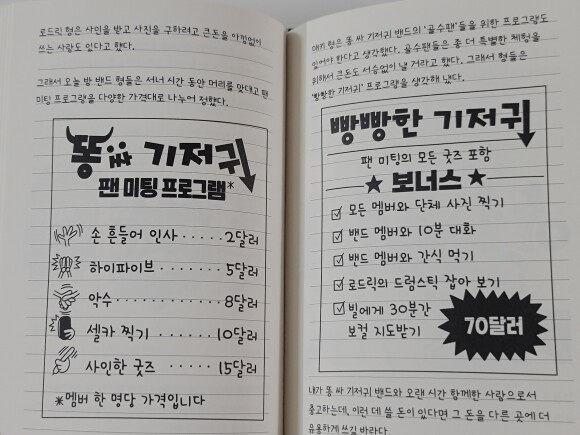 로드릭 형은 사인을 받고 사진을 구하려고 큰돈을 아낌없이
쓰는 사람도 있다고 했다.
그래서 오늘 밤 밴드 형들은 서너 시간 동안 머리를 맞대고 팬
미팅 프로그램을 다양한 가격대로 나누어 정했다.
똥 싸 기저귀
팬 미팅 프로그램*
손 흔들어 인사 ····· 2달러
하이파이브 ······· 5달러
악수 ··········· 8달러
셀카 찍기 ······· 10달러
사인한 굿즈 ······ 15달러
*멤버 한 명당 가격입니다
매키 형은 똥 싸 기저귀 밴드의 '골수팬'들을 위한 프로그램도
있어야 한다고 생각했다. 골수팬들은 좀 더 특별한 체험을
위해서 큰돈도 서슴없이 낼 거라고 했다. 그래서 형들은
'빵빵한 기저귀' 프로그램을 생각해 냈다.
빵빵한 기저귀
팬 미팅의 모든 굿즈 포함
★ 보너스 ★
☑ 모든 멤버와 단체 사진 찍기
☑ 밴드 멤버와 10분 대화
☑ 밴드 멤버와 간식 먹기
☑ 로드릭의 드럼스틱 잡아 보기
☑ 빌에게 30분간
보컬 지도받기
70달러
내가 똥 싸 기저귀 밴드와 오랜 시간 함께한 사람으로서
충고하는데, 이런 데 쓸 돈이 있다면 그 돈을 다른 곳에 더
유용하게 쓰길 바란다.